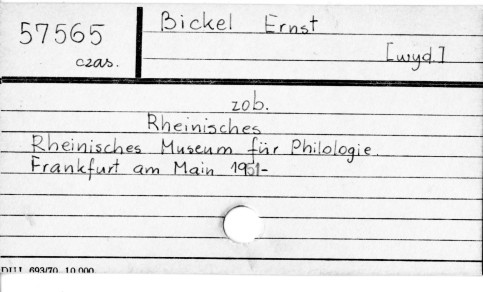 57565
czas.
Bickel Ernst
[wyd.]
zob.
Rheinisches
Rheinisches Museum für Philologie.
Frankfurt am Main 1951-
693/70 10.000